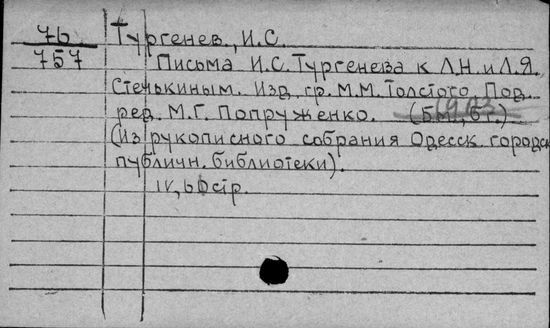 7б Тургенев, И.С.
757 Письма И.С. Тургенева к Л.Н. и Л.Я.
Стечькиным. Изд. гр. М.М. Толстого. Под
ред. М.Г. Попруженко. (Б.М., б.г.)
(Из рукописного собрания Одесск. городск
публичн. библиотеки).
IV, 60 стр.